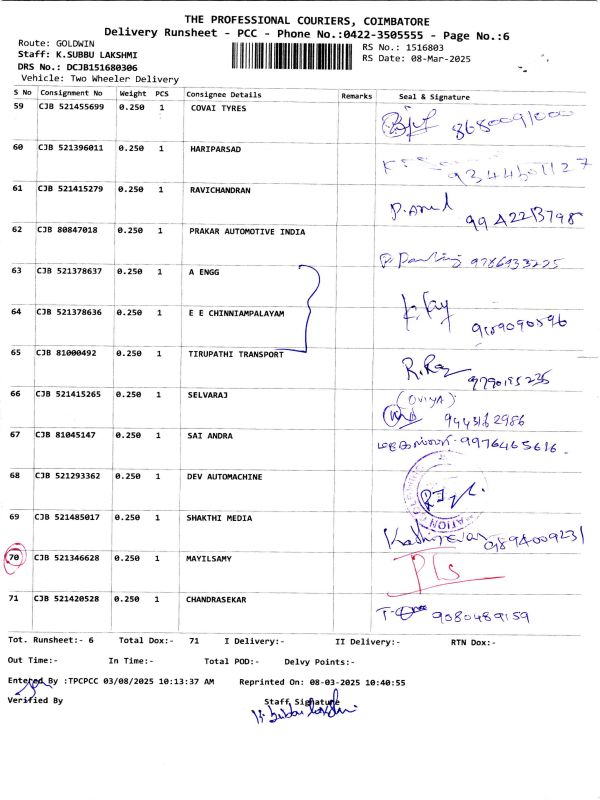 THE PROFESSIONAL COURIERS, COIMBATORE
Delivery Runsheet - PCC - Phone No.:0422-3505555 - Page No.:6
Route: GOLDWIN
RS No.: 1516803
Staff: K.SUBBU LAKSHMI
RS Date: 08-Mar-2025
DRS No.: DCJB151680306
Vehicle: Two Wheeler Delivery
S No Consignment No Weight PCS Consignee Details Remarks Seal & Signature
59 CJB 521455699 0.250 1 COVAI TYRES 8680091000
60 CJB 521396011 0.250 1 HARIPARSAD 9344601127
61 CJB 521415279 0.250 1 RAVICHANDRAN P. 9942213798
62 CJB 80847018 0.250 1 PRAKAR AUTOMOTIVE INDIA 9786933225
63 CJB 521378637 0.250 1 A ENGG
64 CJB 521378636 0.250 1 E E CHINNIAMPALAYAM
65 CJB 81000492 0.250 1 TIRUPATHI TRANSPORT
66 CJB 521415265 0.250 1 SELVARAJ (OVIYA) 9443162986
67 CJB 81045147 0.250 1 SAI ANDRA 9976465616
68 CJB 521293362 0.250 1 DEV AUTOMACHINE
69 CJB 521485017 0.250 1 SHAKTHI MEDIA Kathirevan 9894009231
70 CJB 521346628 0.250 1 MAYILSAMY
71 CJB 521420528 0.250 1 CHANDRASEKAR 9080489159
Tot. Runsheet:- 6 Total Dox:- 71 I Delivery:- II Delivery:- RTN Dox:-
Out Time:- In Time:- Total POD:- Delvy Points:-
Entered By :TPCPCC 03/08/2025 10:13:37 AM Reprinted On: 08-03-2025 10:40:55
Verified By Staff Signature
K. Subbu Lakshmi